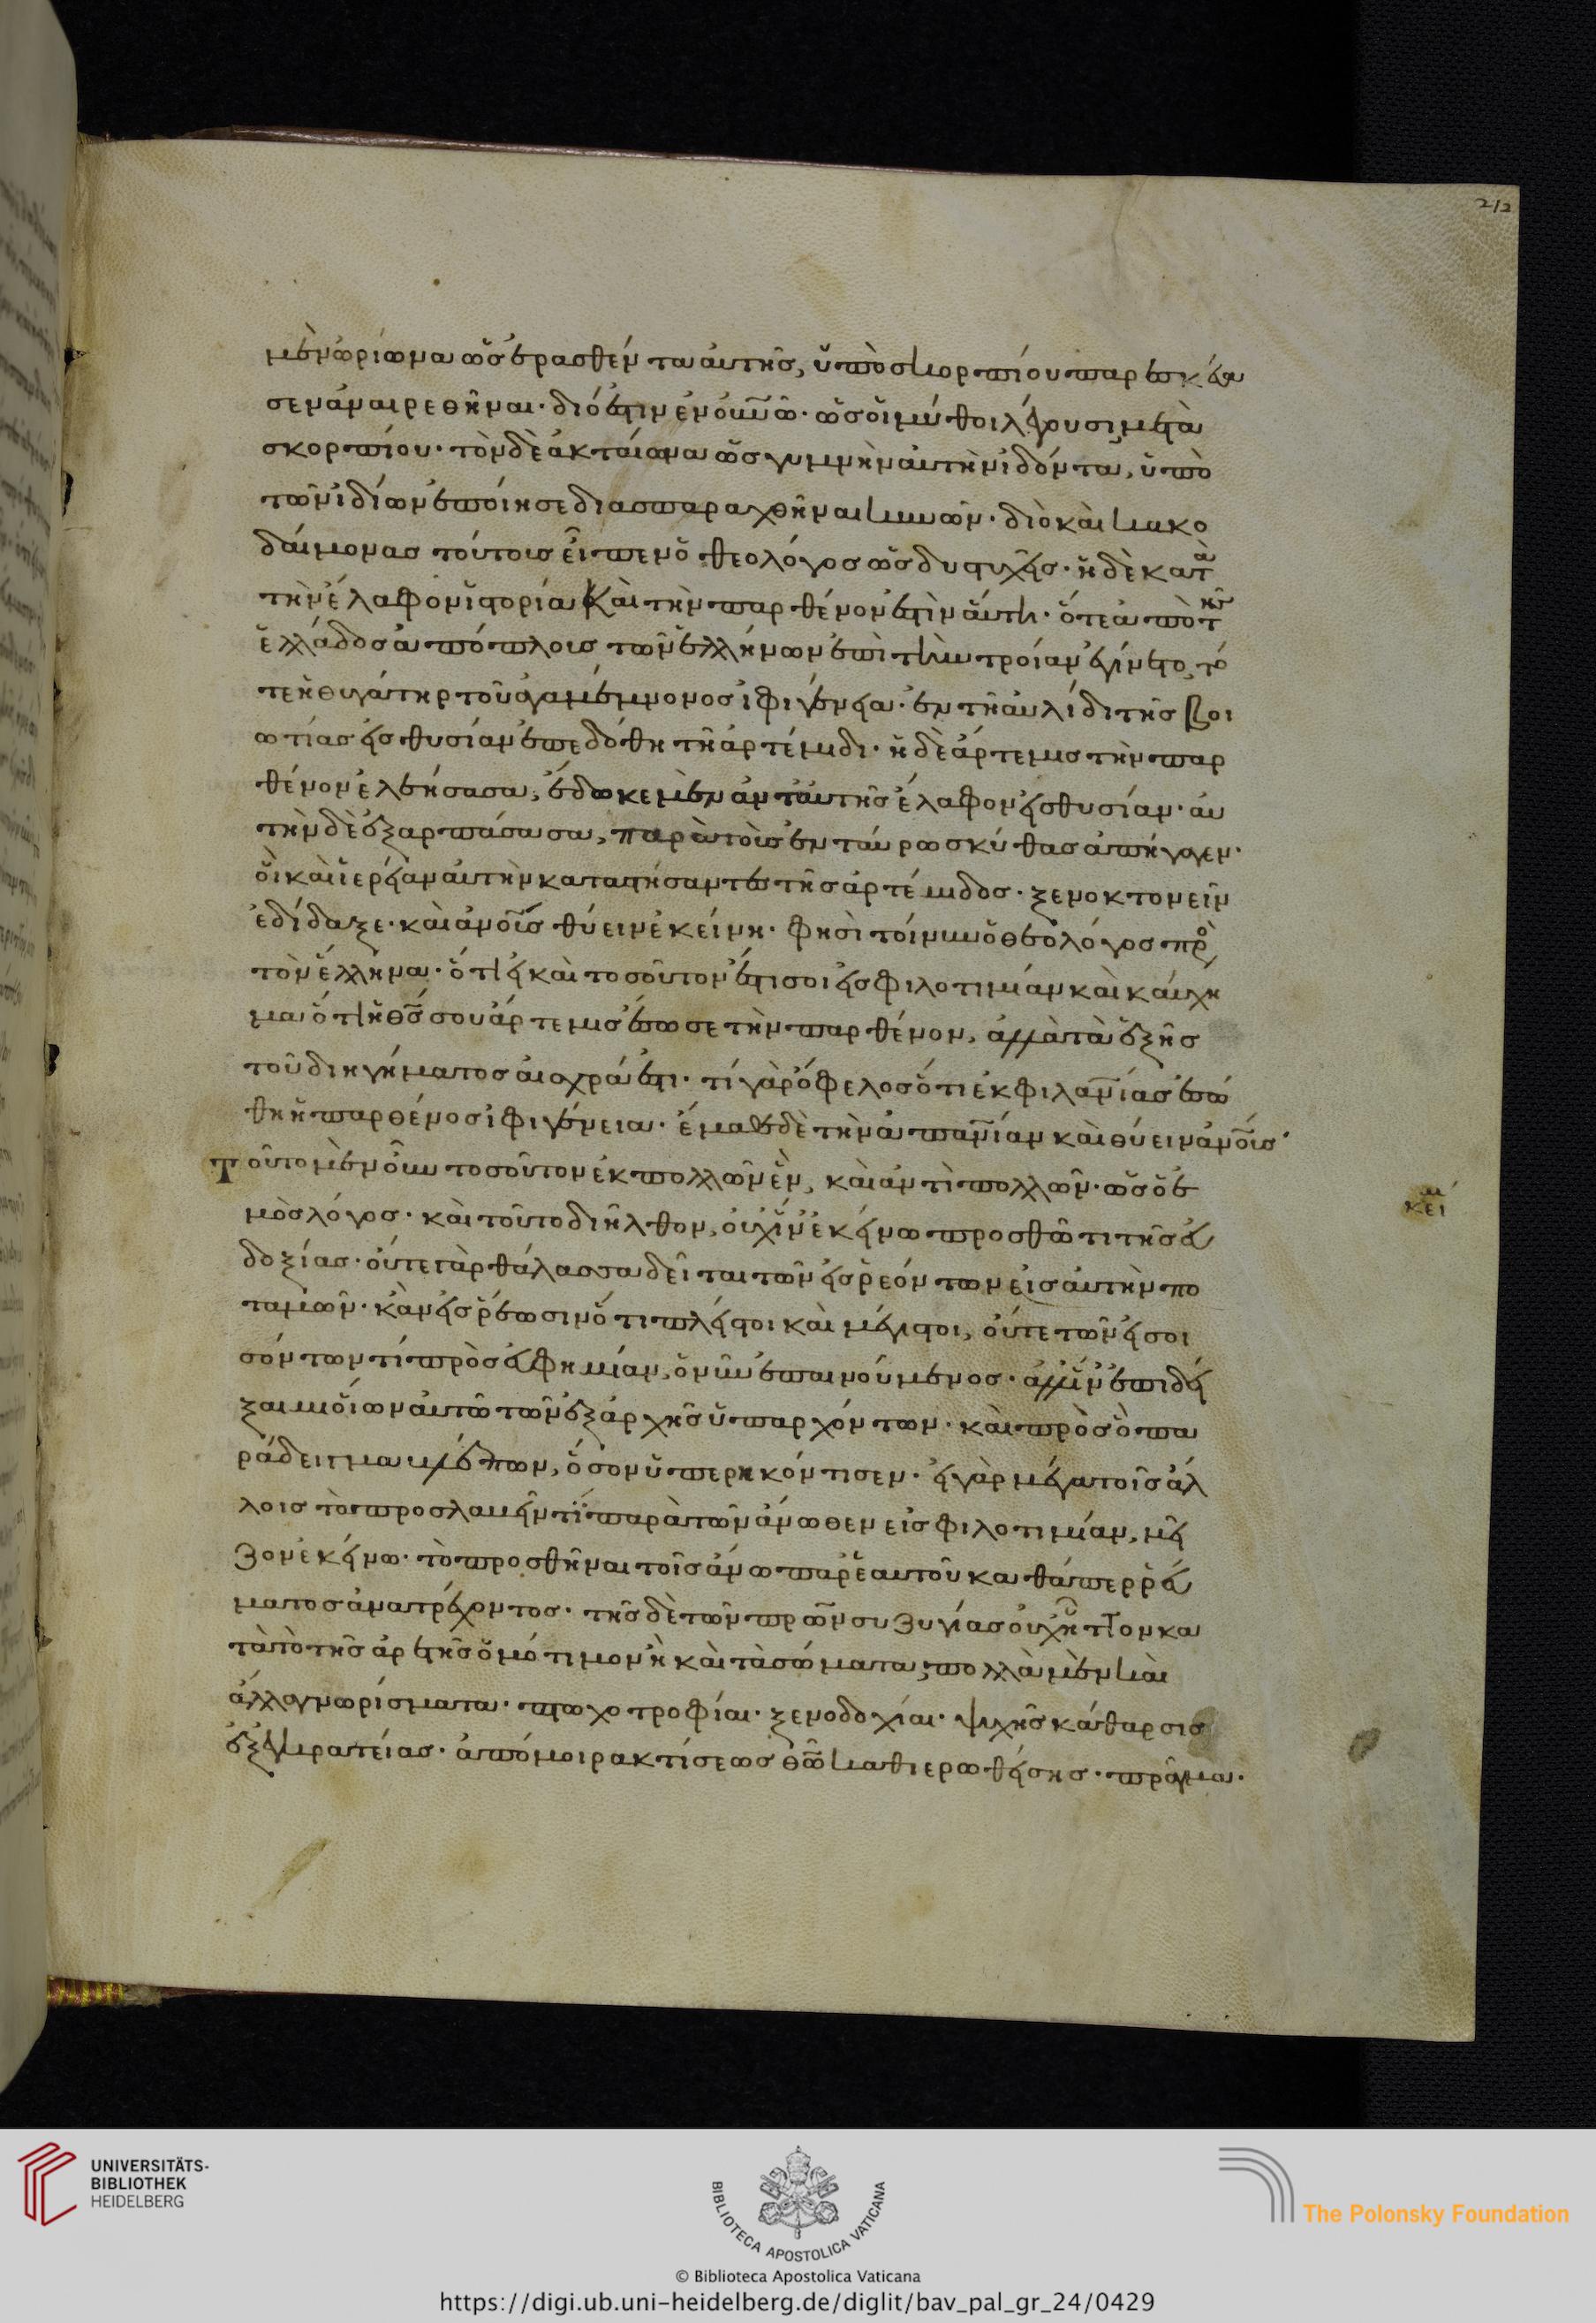 212
μὲν ὠρίωνα ὡς ἐρασθέντα αὐτῆς, ὑπὸ σκορπίου παρεσκεύα
σεν ἀναιρεθῆναι· διό ἐστιν ἐν οὐνῶ· ὡς οἱ μύθοι λέγουσι, μετὰ
σκορπίου· τὸν δὲ ἀκταίωνα ὡς γυμνὴν αὐτὴν ἰδόντα, ὑπὸ
τῶν ἰδίων ἐποίησε διασπαραχθῆναι κυνῶν· διὸ καὶ κακο
δαίμονας τούτοις εἶπεν ὁ θεολόγος ὡς δυστυχεῖς· ἡ δὲ κατὰ τ
τὴν ἔλαφον ἱστορία καὶ τὴν παρθένον ἐστὶν αὕτη· ὅτε ἀπὸ τῆς
ἑλλάδος ἀπόπλοις τῶν ἑλλήνων ἐπὶ τὴν τροίαν ἐγίνετο, τό
τε ἡ θυγάτηρ τοῦ ἀγαμέμνονος ἰφιγένεια· ἐν τῆ αὐλίδι τῆς βοι
ωτίας εἰς θυσίαν ἐπεδόθη τῆ ἀρτέμιδι· ἡ δὲ ἄρτεμις τὴν παρ
θένον ἐλεήσασα, ἔδωκε μὲν ἀντ αὐτῆς ἔλαφον εἰς θυσίαν· αὐ
τὴν δὲ ἐξαρπάσασα, παρὰ τοὺς ἐν ταύρω σκύθας ἀπήγαγεν·
οἳ καὶ ἱέρειαν αὐτὴν καταστήσαντες τῆς ἀρτέμιδος· ξενοκτονεῖν
ἐδίδαξε· καὶ ἀνοῖς θύειν ἐκείνη· φησὶ τοίνυν ὁ θεολόγος πρὸ
τὸν ἕλληνα· ὅτι εἰ καὶ τοσοῦτον ἐστί σοι εἰς φιλοτιμίαν καὶ καύχη
μα ὅτι ἡ θς σου ἄρτεμις ἔσωσε τὴν παρθένον, ἀλλὰ τὰ ἑξῆς
τοῦ διηγήματος αἰσχρά ἐστι· τί γὰρ ὄφελος ὅτι ἐκ φιλανίας ἐσώ
θη ἡ παρθένος ἰφιγένεια· ἔμαθε δὲ τὴν ἀπανίαν καὶ θύειν ἀνοῖς·
Τοῦτο μὲν οὖν τοσοῦτον ἐκ πολλῶν ἓν, καὶ ἀντὶ πολλῶν· ὡς ὁ ἐ
μὸς λόγος· καὶ τοῦτο διῆλθον, οὐχ ἵν ἐκείνω προσθῶ τι τῆς εὐ
δοξίας· οὔτε γὰρ θάλασσα δεῖται τῶν εἰσρεόντων εἰς αὐτὴν πο
ταμῶν· κἂν εἰσρέωσιν ὅτι πλεῖστοι καὶ μέγιστοι, οὔτε τῶν εἰσοι
σόντων τί πρὸς εὐφημίαν, ὁ νῦν ἐπαινούμενος· ἀλλ ἵν ἐπιδεί
ξαιμι οἵων αὐτῶ τῶν ἐξ ἀρχῆς ὑπαρχόντων· καὶ πρὸς ὃ πα
ράδειγμα βλέπων, ὅσον ὑπερηκόντισεν· εἰ γὰρ μέγα τοῖς ἄλ
λοις τὸ προσλαβεῖν τι παρὰ τῶν ἄνωθεν εἰς φιλοτιμίαν, μεῖ
ζον ἐκείνω· τὸ προσθῆναι τοῖς ἄνω παρ ἑαυτοῦ καθάπερ ῥεύ
ματος ἀνατρέχοντος· τῆς δὲ τῶν πρων συζυγίας οὐχ ἧττον κα
τὰ τὸ τῆς ἀρετῆς ὁμότιμον ἢ κατὰ σώματα, πολλὰ μὲν καὶ
ἄλλα γνωρίσματα· πτωχοτροφίαι· ξενοδοχίαι· ψυχῆς κάθαρσις
ἐξ ἐγκρατείας· ἀπόμοιρα κτίσεως θῶ καθιερωθείσης· πρᾶγμα·
κεί
UNIVERSITÄTS-
BIBLIOTHEK
HEIDELBERG
BIBLIOTECA APOSTOLICA VATICANA
The Polonsky Foundation
© Biblioteca Apostolica Vaticana
https://digi.ub.uni-heidelberg.de/diglit/bav_pal_gr_24/0429